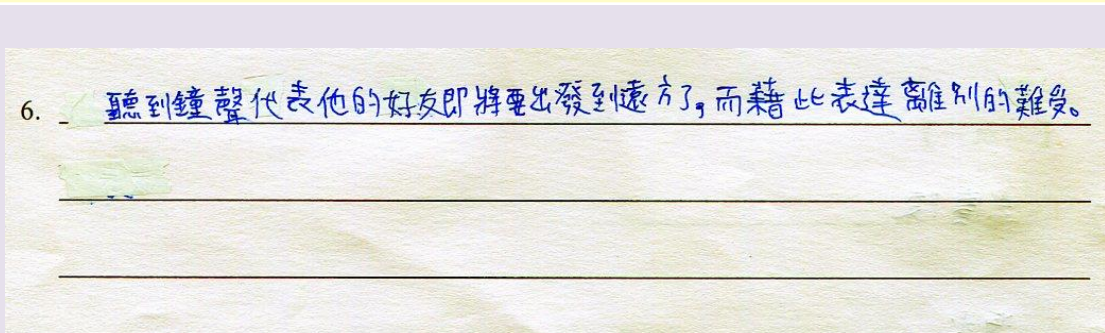 6. 聽到鐘聲代表他的好友即將要出發到遠方了，而藉此表達離別的難受。